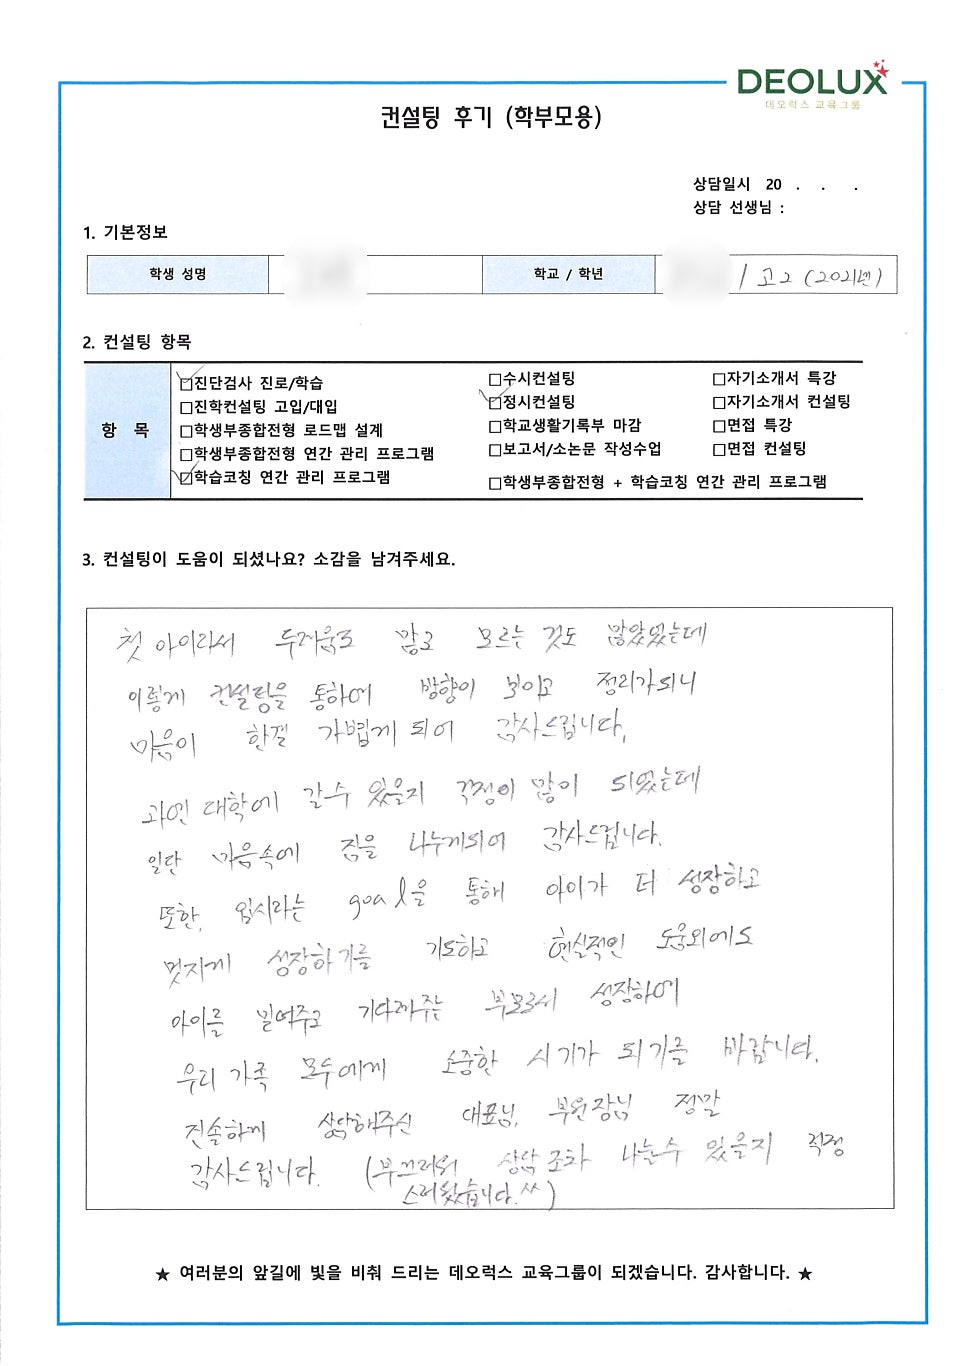 DEOLUX
데오럭스 교육그룹
컨설팅 후기 (학부모용)
상담일시 20 . . .
상담 선생님 :
1. 기본정보
학생 성명
학교 / 학년
/ 고2 (2021년)
2. 컨설팅 항목
항 목
☑진단검사 진로/학습
□진학컨설팅 고입/대입
□학생부종합전형 로드맵 설계
□학생부종합전형 연간 관리 프로그램
☑학습코칭 연간 관리 프로그램
□수시컨설팅
☑정시컨설팅
□학교생활기록부 마감
□보고서/소논문 작성수업
□학생부종합전형 + 학습코칭 연간 관리 프로그램
□자기소개서 특강
□자기소개서 컨설팅
□면접 특강
□면접 컨설팅
3. 컨설팅이 도움이 되셨나요? 소감을 남겨주세요.
첫 아이라서 두려움도 많고 모르는 것도 많았었는데
이렇게 컨설팅을 통하여 방향이 보이고 정리가되니
마음이 한결 가볍게 되어 감사드립니다.
과연 대학에 갈수 있을지 걱정이 많이 되었는데
일단 마음속에 짐을 나누게되어 감사드립니다.
또한, 입시라는 goal을 통해 아이가 더 성장하고
멋지게 성장하기를 기도하고 현실적인 도움외에도
아이를 믿어주고 기다려주는 부모로서 성장하여
우리 가족 모두에게 소중한 시기가 되기를 바랍니다.
진솔하게 상담해주신 대표님, 부원장님 정말
감사드립니다. (부끄러워 상담조차 나눌수 있을지 걱정
스러웠습니다.^^)
★ 여러분의 앞길에 빛을 비춰 드리는 데오럭스 교육그룹이 되겠습니다. 감사합니다. ★